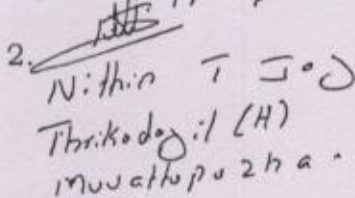 2.
Nithin T Joy
Thrikodayil (H)
Muvattupuzha.